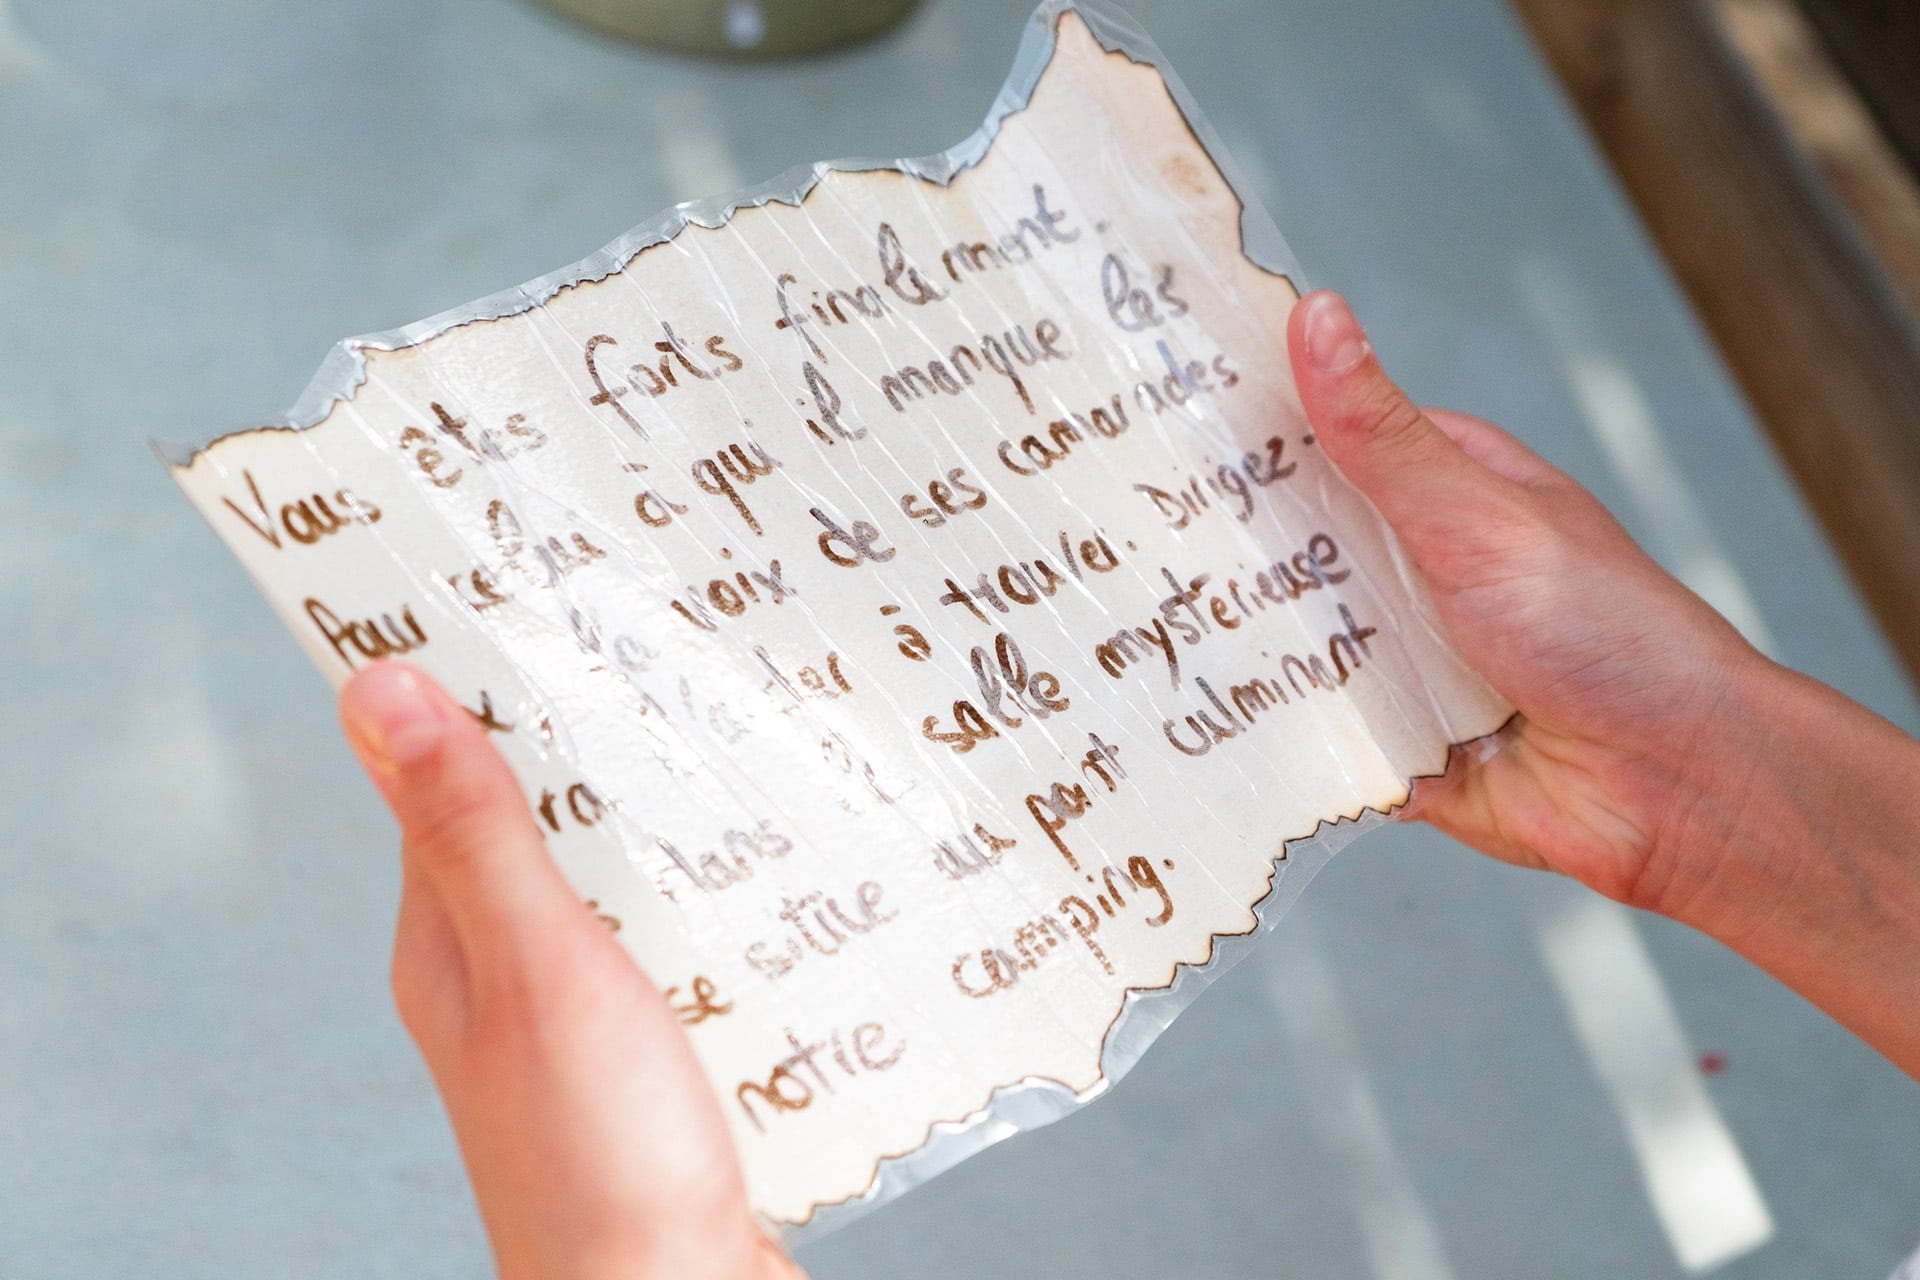 Vous êtes forts finalement.
Pour celui à qui il manque les
la voix de ses camarades
l'aider à trouver. Dirigez-
dans la salle mystérieuse
se situe au point culminant
notre camping.